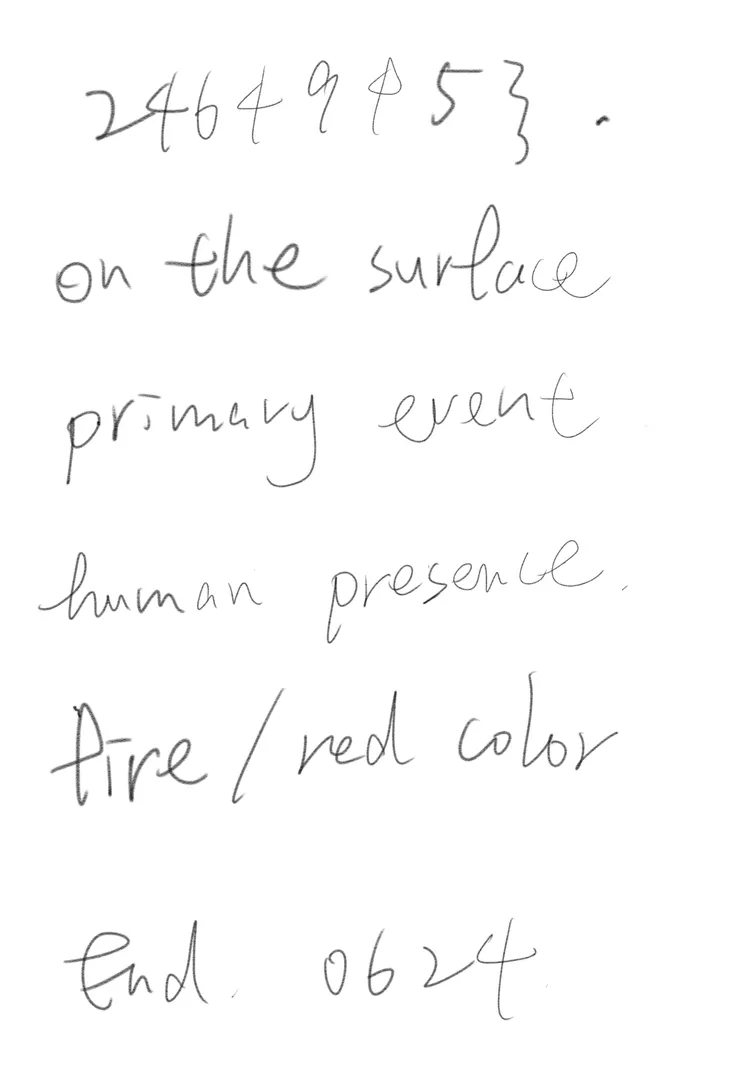 24649451}.
on the surface
primary event
human presence.
fire/red color
End. 0624